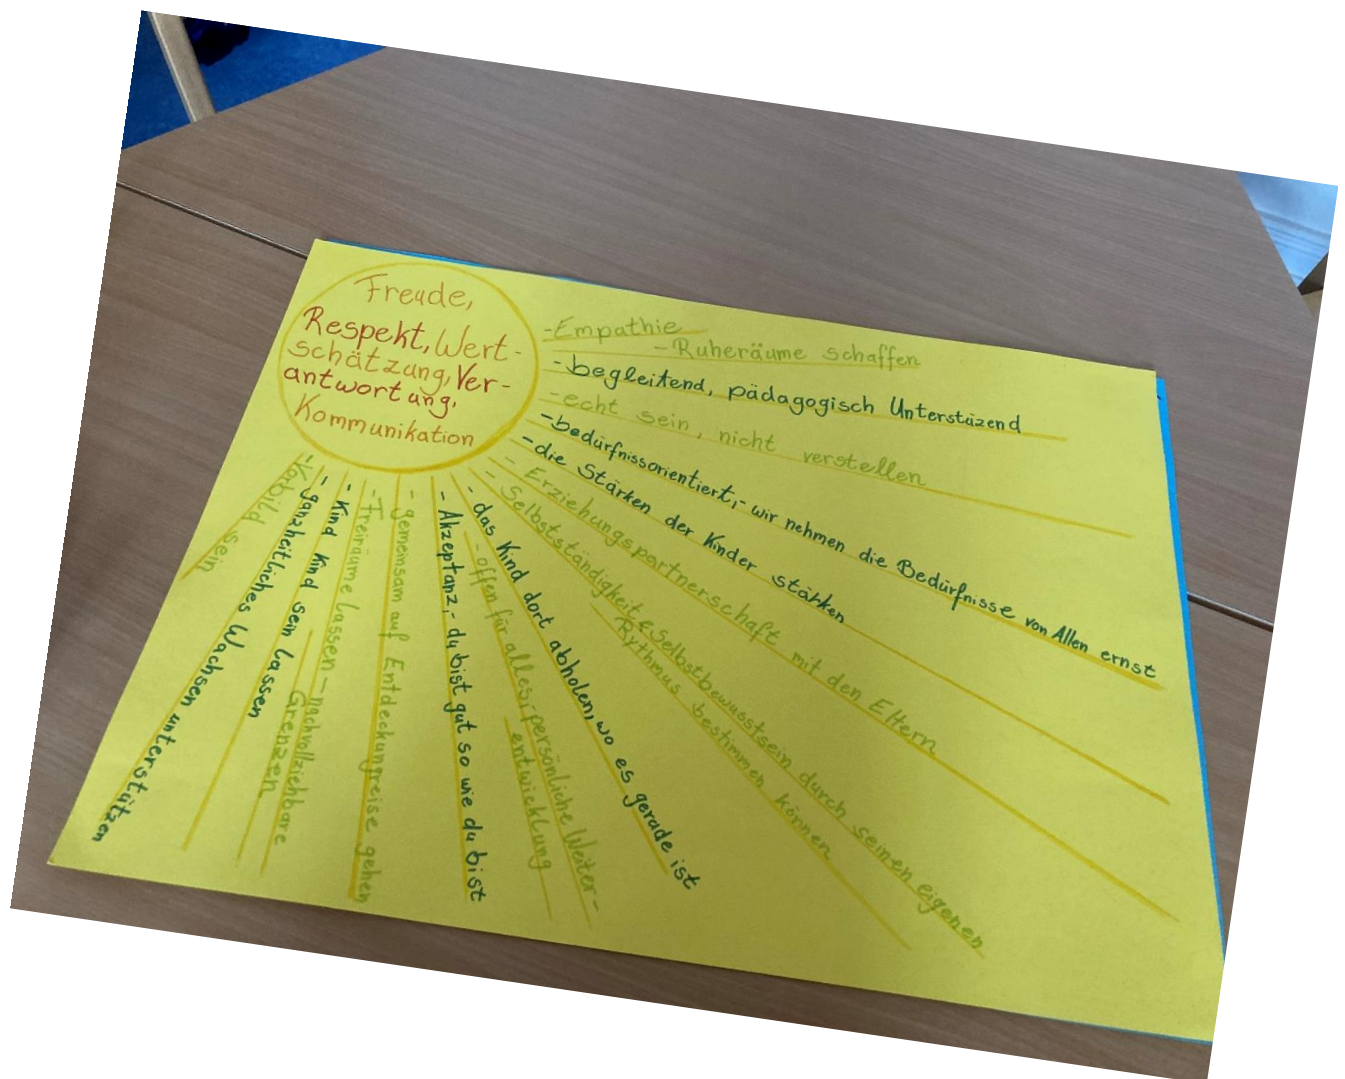 Freude,
Respekt, Wert-
schätzung, Ver-
antwortung,
Kommunikation
-Empathie
-Ruheräume schaffen
-begleitend, pädagogisch Unterstüzend
-echt sein, nicht verstellen
-bedürfnissorientiert,- wir nehmen die Bedürfnisse von Allen ernst
-die Stärken der Kinder stärken
- Erziehungspartnerschaft mit den Eltern
- Selbstständigkeit & Selbstbewusstsein durch seinen eigenen
Rythmus bestimmen können
- das Kind dort abholen, wo es gerade ist
- offen für alles,- persönliche Weiter-
entwicklung
- Akzeptanz,- du bist gut so wie du bist
- gemeinsam auf Entdeckungreise gehen
- Freiräume lassen - nachvollziehbare
Grenzen
- Kind Kind sein lassen
- ganzheitliches Wachsen unterstützen
-Vorbild sein